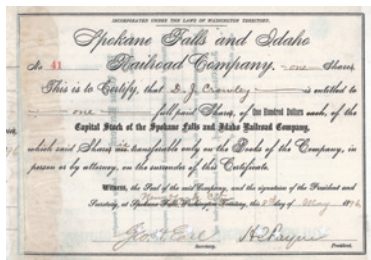 INCORPORATED UNDER THE LAWS OF WASHINGTON TERRITORY.
Spokane Falls and Idaho
No 41 Railroad Company. one Shares
This is to Certify, that D. J. Crowley is entitled to
one full paid Shares, of One Hundred Dollars each, of the
Capital Stock of the Spokane Falls and Idaho Railroad Company,
which said Shares transferable only on the Books of the Company, in
person or by attorney, on the surrender of this Certificate.
Witness, the Seal of the said Company, and the signature of the President and
Secretary, at Spokane Falls, Washington Territory, this 8th day of May 1896
Secretary. President.